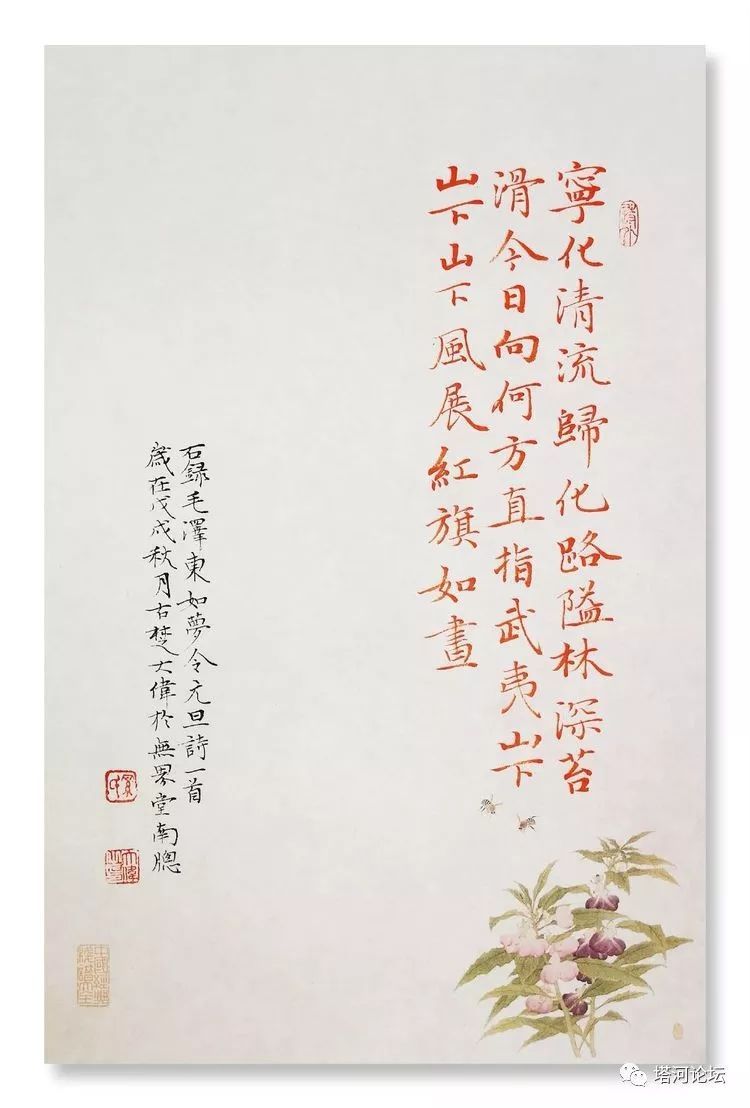 寧化清流歸化路隘林深苔
滑今日向何方直指武夷山下
山下山下風展紅旗如畫
右錄毛澤東如夢令元旦詩一首
歲在戊戌秋月古楚大偉於無界堂南牕
塔河论坛